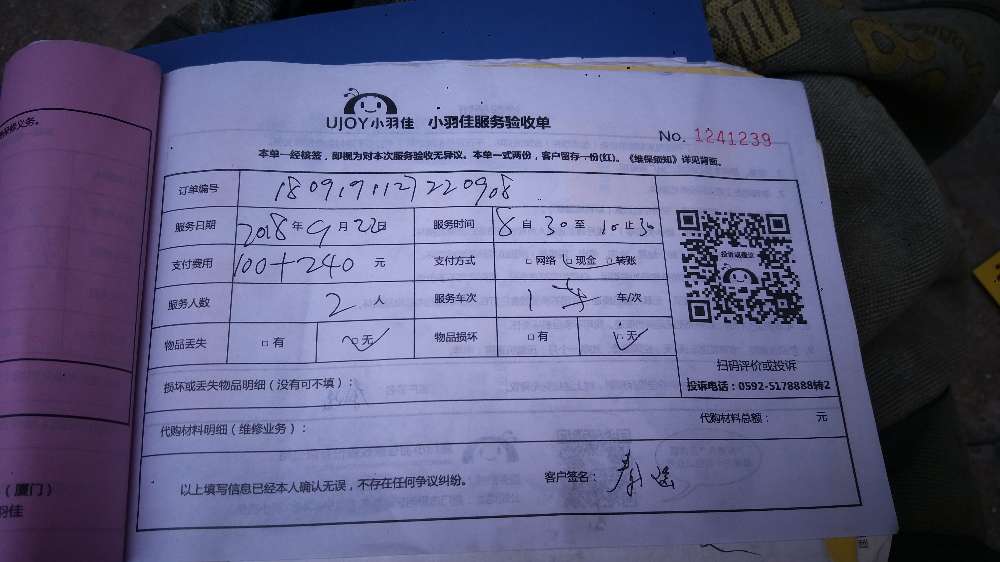 保修义务。
UJOY小羽佳 小羽佳服务验收单
No. 1241239
本单一经核签，即视为对本次服务验收无异议。本单一式两份，客户留存一份(红)。《维保须知》详见背面。
订单编号 1809191127220908
服务日期 2018年9月22日 服务时间 8自30至10止30
支付费用 100+240元 支付方式 □网络 □现金 □转账
投诉或建议
服务人数 2人 服务车次 1车 车/次
物品丢失 □有 □无 物品损坏 □有 □无
扫码评价或投诉
损坏或丢失物品明细（没有可不填）： 投诉电话：0592-5178888转2
代购材料明细（维修业务）： 代购材料总额： 元
以上填写信息已经本人确认无误，不存在任何争议纠纷。 客户签名：
（厦门）
羽佳